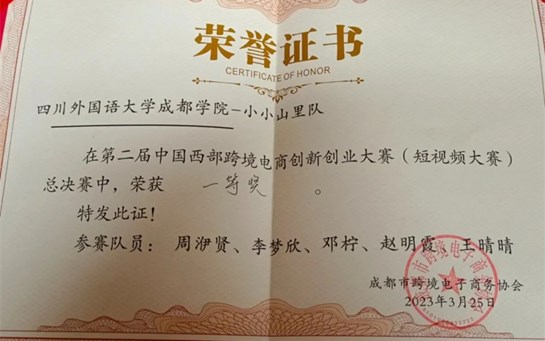 荣誉证书
CERTIFICATE OF HONOR
四川外国语大学成都学院-小小山里队
在第二届中国西部跨境电商创新创业大赛（短视频大赛）
总决赛中，荣获 一等奖 。
特发此证！
参赛队员：周洢贤、李梦欣、邓柠、赵明霞、王晴晴
成都市跨境电子商务协会
2023年3月25日